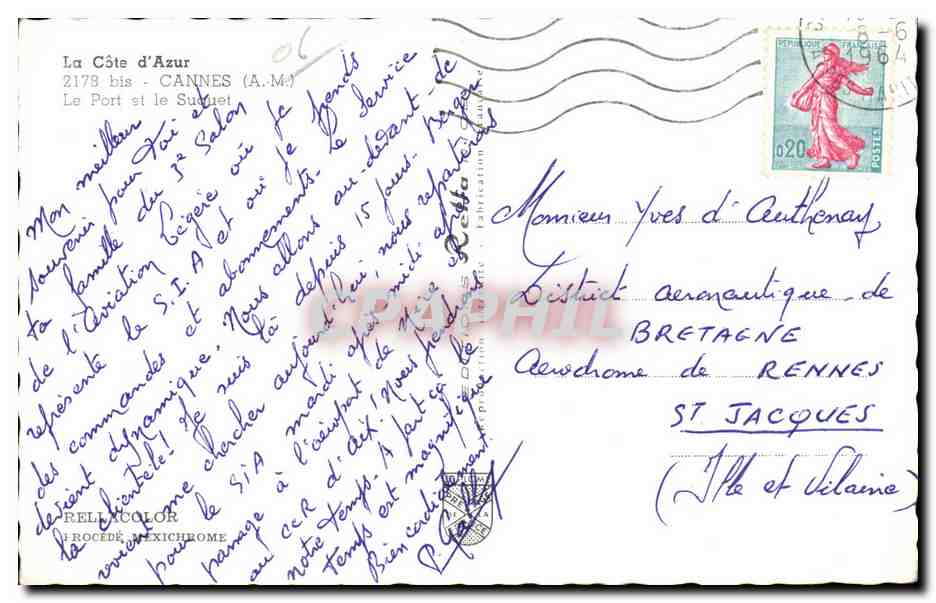 La Côte d'Azur
2178 bis - CANNES (A.-M.)
Le Port et le Suquet
06
Mon meilleur
souvenir pour toi et
ta famille du 1er Salon
de l'Aviation Légère où je
représente le S.I.A et où je prends
des commandes et abonnements. le Service
devient dynamique. Nous allons au-devant-de
la clientèle! Je suis là depuis 15 jours. Berger
revient me chercher aujourd'hui, nous repartirons
pour le SIA mardi après midi après
passage à l'aéroport de Nice et
au CCR d'Aix. Nous prendrons
notre temps. A part ça le
temps est magnifique
Bien cordialement
RELLACOLOR
PROCÉDÉ MEXICHROME
EDITIONS Rella
Fabrication Française
CPAPHIL
RÉPUBLIQUE FRANÇAISE
0,20
POSTES
8-6
1964
Monsieur Yves d'Authenay
District aéronautique de
BRETAGNE
Aérodrome de RENNES
ST JACQUES
(Ille et Vilaine)